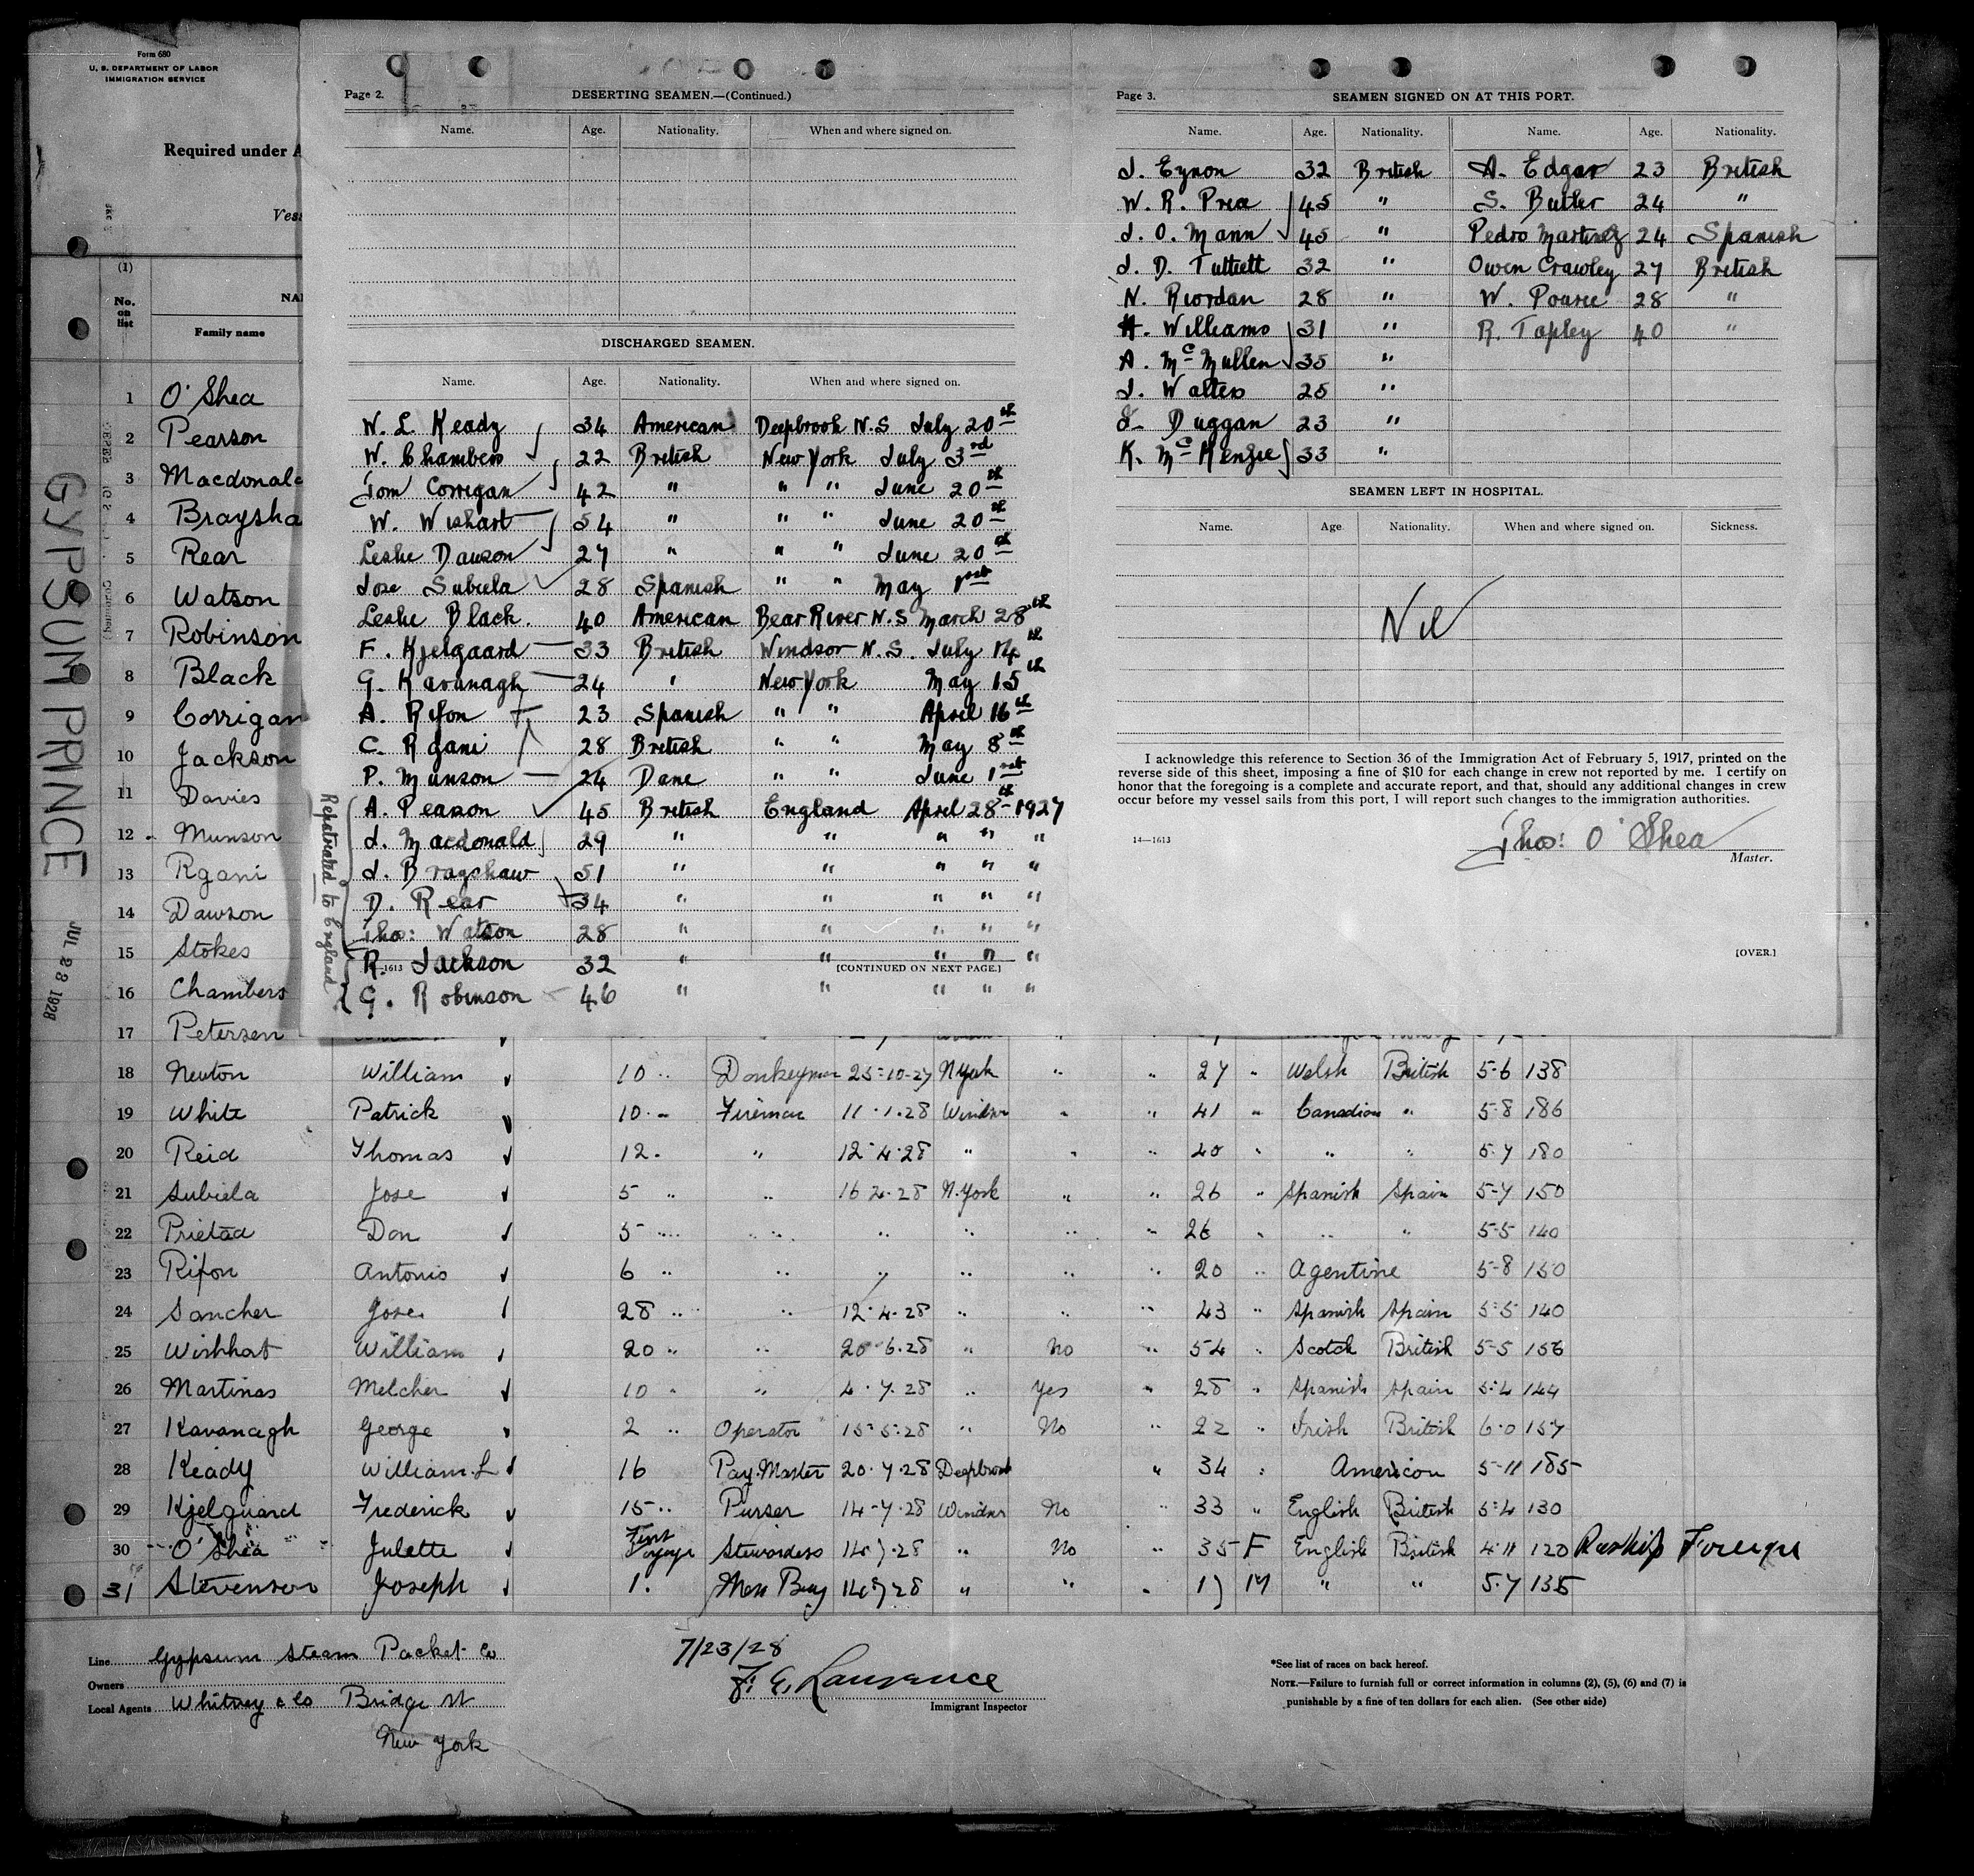 Form 680
U. S. DEPARTMENT OF LABOR
IMMIGRATION SERVICE
Required under A
Vess
(1)
No. on list
NA
Family name
1 O'Shea
2 Pearson
3 Macdonald
4 Braysha
5 Rear
6 Watson
7 Robinson
8 Black
9 Corrigan
10 Jackson
11 Davies
12 Munson
13 Rgani
14 Dawson
15 Stokes
16 Chambers
17 Petersen
GYPSUM PRINCE
JUL 23 1928
Page 2. DESERTING SEAMEN.—(Continued.)
Name. Age. Nationality. When and where signed on.
DISCHARGED SEAMEN.
Name. Age. Nationality. When and where signed on.
W. L. Keady 34 American Deepbrook N.S July 20th
W. Chambers 22 British New York July 3rd
Tom Corrigan 42 " " " June 20th
W. Wishart 54 " " " June 20th
Leslie Dawson 27 " " " June 20th
Jose Subiela 28 Spanish " " May 1st
Leslie Black. 40 American Bear River N.S March 28th
F. Kjelgaard 33 British Windsor N.S. July 14th
G. Kavanagh 24 " New York May 15th
A. Rifon 23 Spanish " " April 16th
C. Rgani 28 British " " May 8th
P. Munson 24 Dane " " June 1st
A. Pearson 45 British England April 28th 1927
J. Macdonald 29 " " " " "
J. Brayshaw 51 " " " " "
D. Rear 34 " " " " "
Thos: Watson 28 " " " " "
R. Jackson 32 " " " " "
1613 [CONTINUED ON NEXT PAGE.]
G. Robinson 46 " " " " "
Repatriated to England
Page 3. SEAMEN SIGNED ON AT THIS PORT.
Name. Age. Nationality. Name. Age. Nationality.
J. Eynon 32 British A. Edgar 23 British
W. R. Price 45 " S. Butler 24 "
J. O. Mann 45 " Pedro Martinez 24 Spanish
J. D. Tuttiett 32 " Owen Crawley 27 British
N. Riordan 28 " W. Pourie 28 "
H. Williams 31 " R. Tapley 40 "
A. McMullen 35 "
J. Walters 25 "
J. Duggan 23 "
K. McKenzie 33 "
SEAMEN LEFT IN HOSPITAL.
Name. Age. Nationality. When and where signed on. Sickness.
Nil
I acknowledge this reference to Section 36 of the Immigration Act of February 5, 1917, printed on the
reverse side of this sheet, imposing a fine of $10 for each change in crew not reported by me. I certify on
honor that the foregoing is a complete and accurate report, and that, should any additional changes in crew
occur before my vessel sails from this port, I will report such changes to the immigration authorities.
14—1613
Thos: O'Shea
Master.
[OVER.]
18 Newton William 10 " Donkeyman 25-10-27 N York " " 27 " Welsh British 5-6 138
19 White Patrick 10 " Fireman 11.1.28 Windsor " " 41 " Canadian " 5-8 186
20 Reid Thomas 12 . " 12.4.28 " " " 40 " " " 5-7 180
21 Subiela Jose 5 " " 16 4.28 N.York " " 26 " Spanish Spain 5-7 150
22 Prietad Don 5 " " " " " " 26 " " " 5-5 140
23 Rifon Antonio 6 " " " " " " 20 " Agentine 5-8 150
24 Sancher Jose 28 " " 12.4.28 " " " 43 " Spanish Spain 5-5 140
25 Wishhat William 20 " " 20.6.28 " No " 54 " Scotch British 5-5 156
26 Martinas Melcher 10 " " 4.7.28 " Yes " 28 " Spanish Spain 5-4 144
27 Kavanagh George 2 " Operator 15-5-28 " No " 22 " Irish British 6-0 157
28 Keady William.L 16 Pay.Master 20.7.28 Deepbrook " 34 " American 5-11 185
29 Kjelguard Frederick 15 " Purser 14-7.28 Windsor No " 33 " English British 5-4 130
30 O'Shea Juliette First Voyage Stewardess 14.7.28 " No " 35 F English British 4-11 120
31 Stevenson Joseph 1. Mess Boy 14.7.28 " " " 17 M " " 5.7 135
Line Gypsum Steam Packet Co
Owners
Local Agents Whitney & Co Bridge St
New York
7/23/28
F. E. Lawrence
Immigrant Inspector
*See list of races on back hereof.
NOTE.—Failure to furnish full or correct information in columns (2), (5), (6) and (7) is
punishable by a fine of ten dollars for each alien. (See other side)